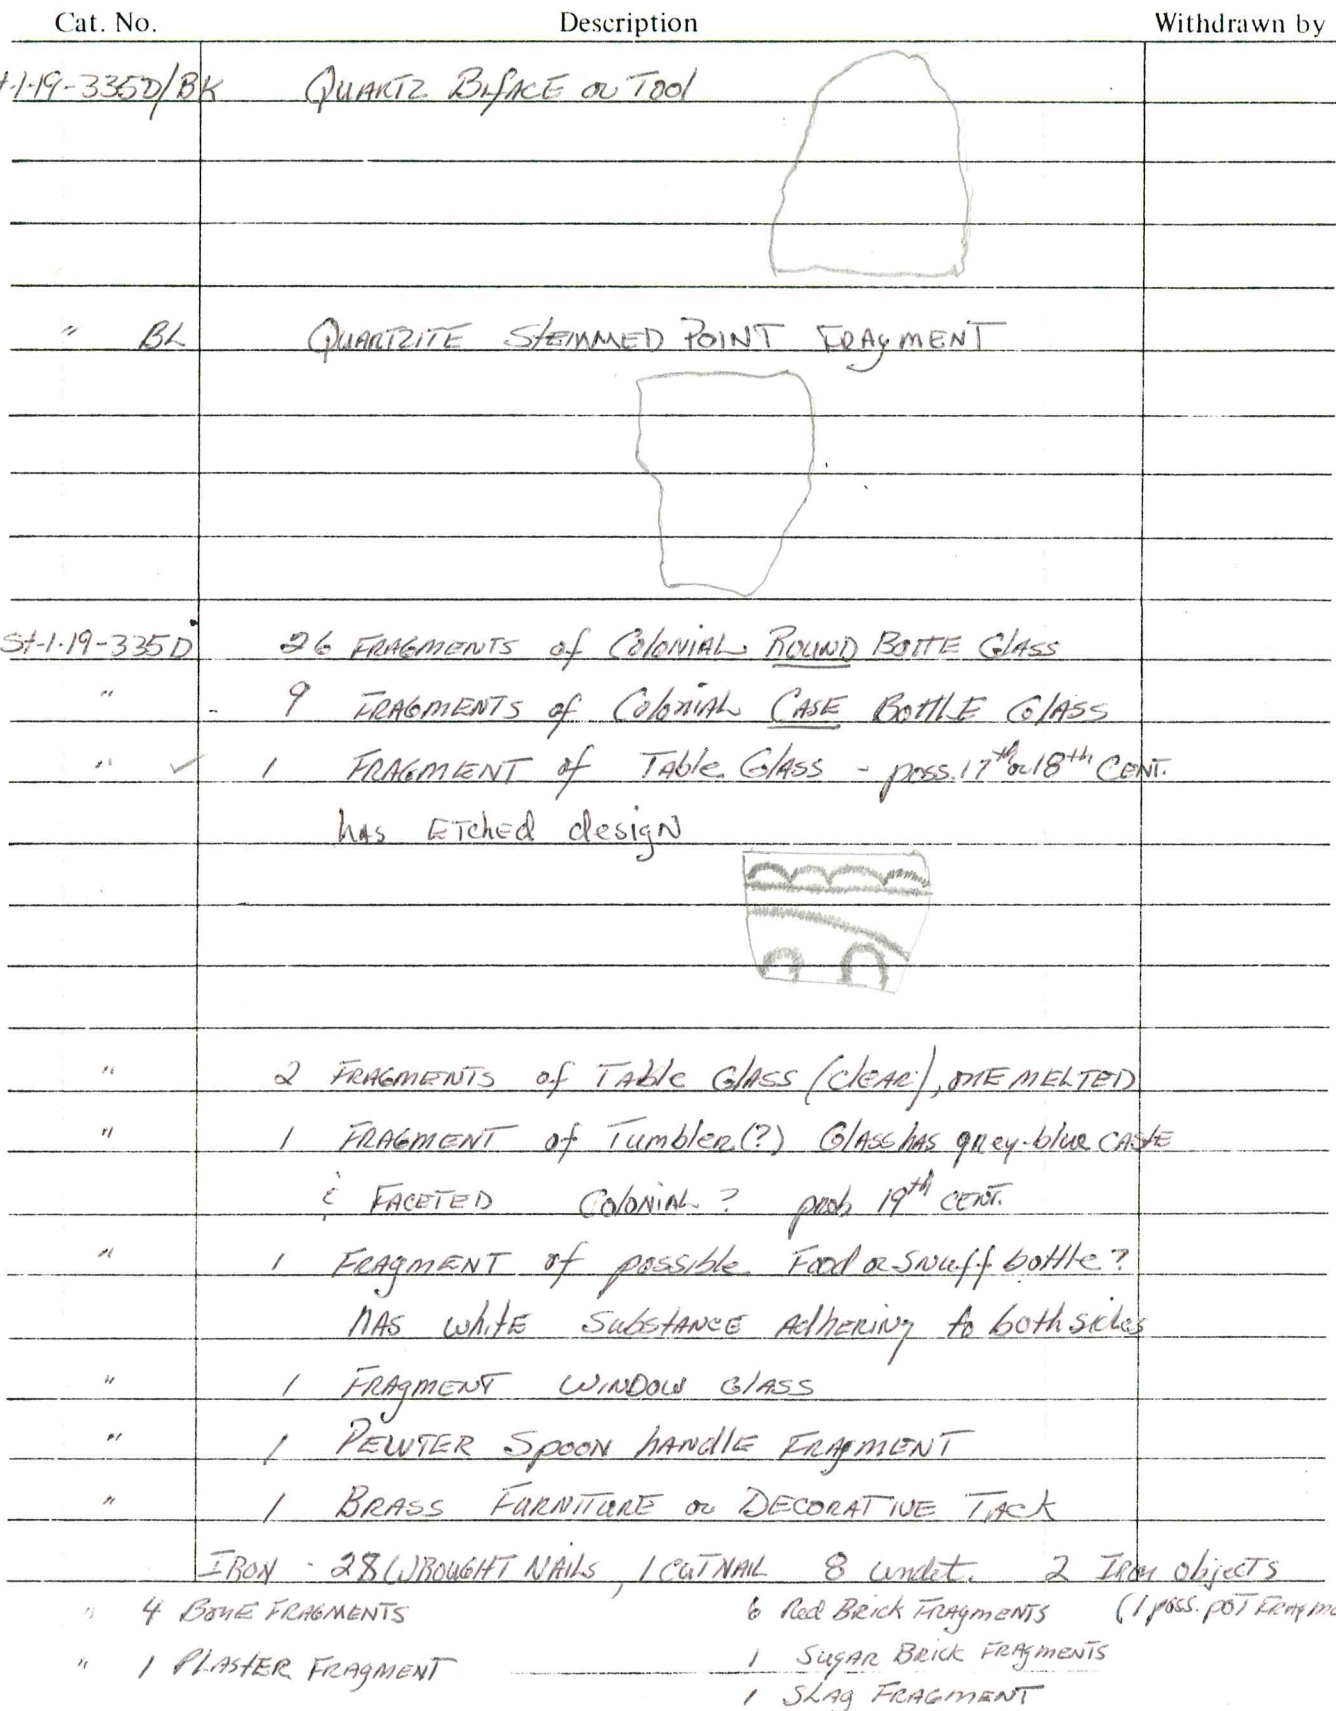 Cat. No. Description Withdrawn by
t-1-19-335D/BK QUARTZ BIFACE or Tool
" BL QUARTZITE STEMMED POINT FRAGMENT
St-1-19-335D 26 FRAGMENTS of Colonial ROUND BOTTE Glass
" - 9 FRAGMENTS of Colonial CASE BOTTLE Glass
" ✓ 1 FRAGMENT of Table Glass - poss. 17th or 18th CENT.
has ETched design
" 2 FRAGMENTS of Table Glass (clear), ONE MELTED
" 1 FRAGMENT of Tumbler(?) Glass has grey-blue caste
& FACETED Colonial? prob 19th CENT.
" 1 FRAGMENT of possible Food or Snuff bottle?
has white Substance Adhering to both sides
" 1 FRAGMENT WINDOW Glass
" 1 PEWTER Spoon handle FRAGMENT
" 1 BRASS FURNITURE or DECORATIVE Tack
IRON - 28 WROUGHT NAILS, 1 CUT NAIL 8 undet. 2 Iron objects
" 4 BONE FRAGMENTS 6 Red Brick FRAGMENTS (1 poss. pot Fragme
" 1 PLASTER FRAGMENT 1 Sugar Brick FRAGMENTS
1 Slag FRAGMENT